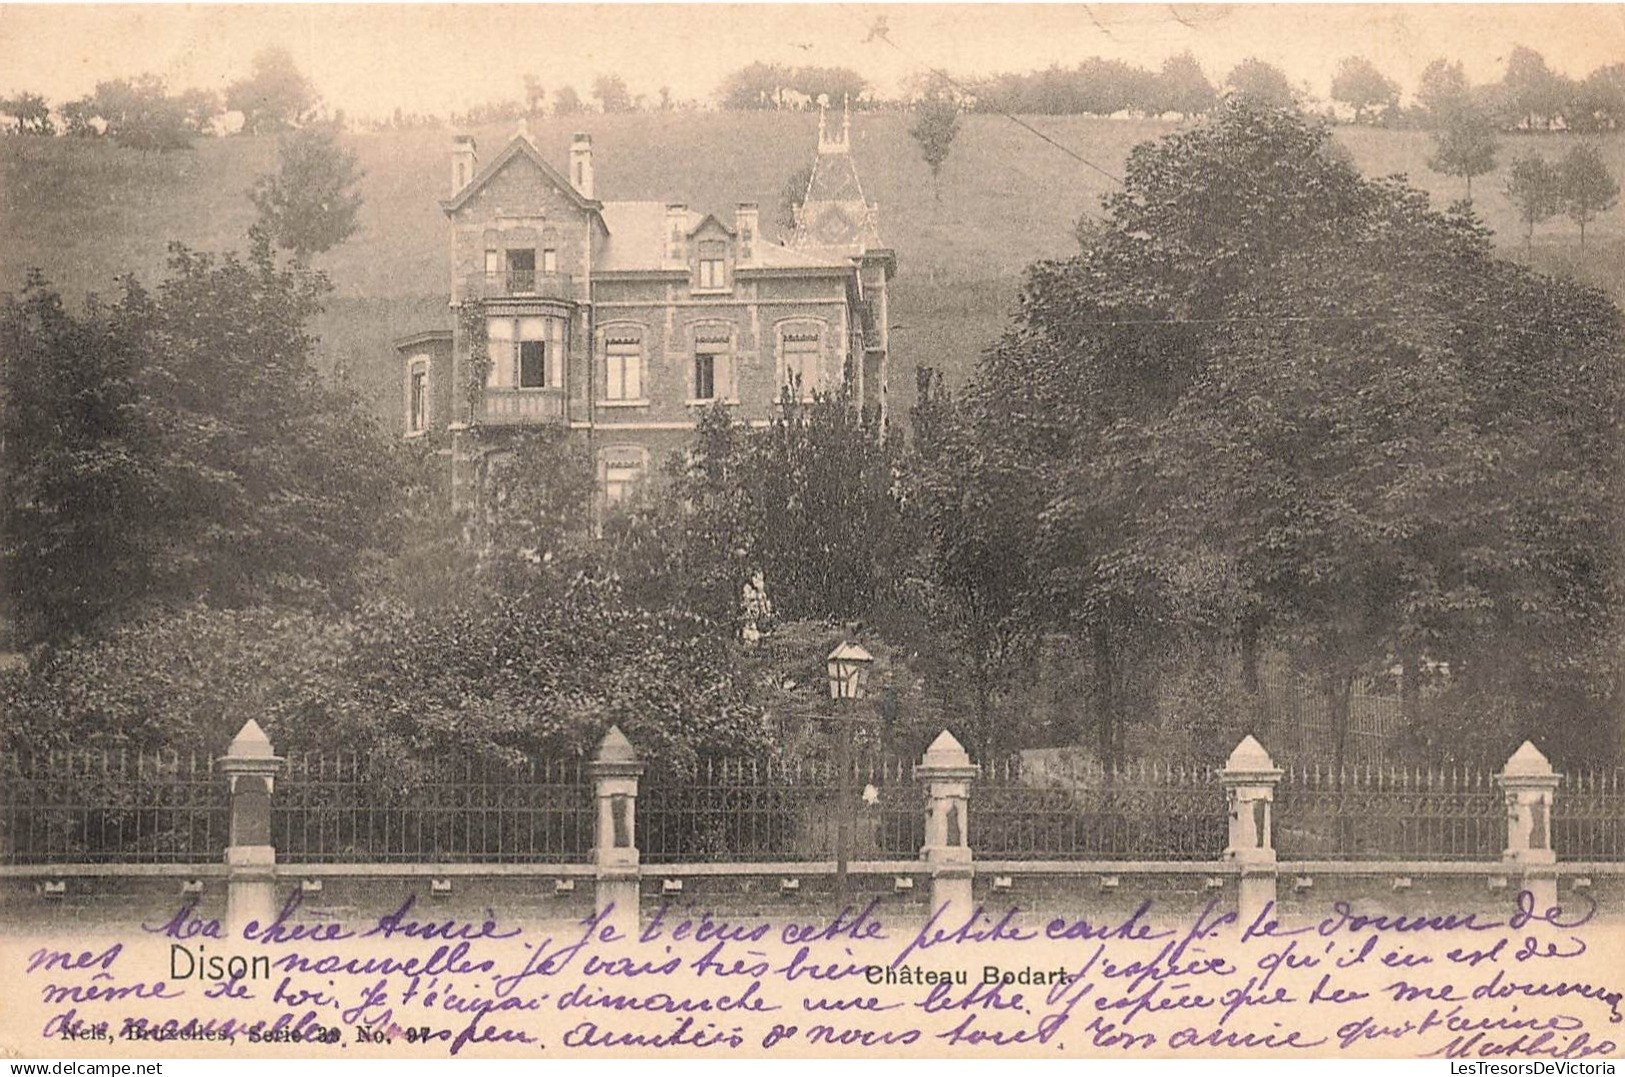 Ma chère Annie Je t'écris cette petite carte pr te donner de
mes nouvelles. Je vais très bien j'espère qu'il en est de
Dison
Château Bodart.
même de toi. Je t'écrirai dimanche une lettre. J'espère que tu me donneras
de nouvelles. peu. Amitiés de nous tous. Ton amie qui t'aime
Nels, Bruxelles, Serie 39 No. 97
Mathilde
LesTresorsDeVictoria